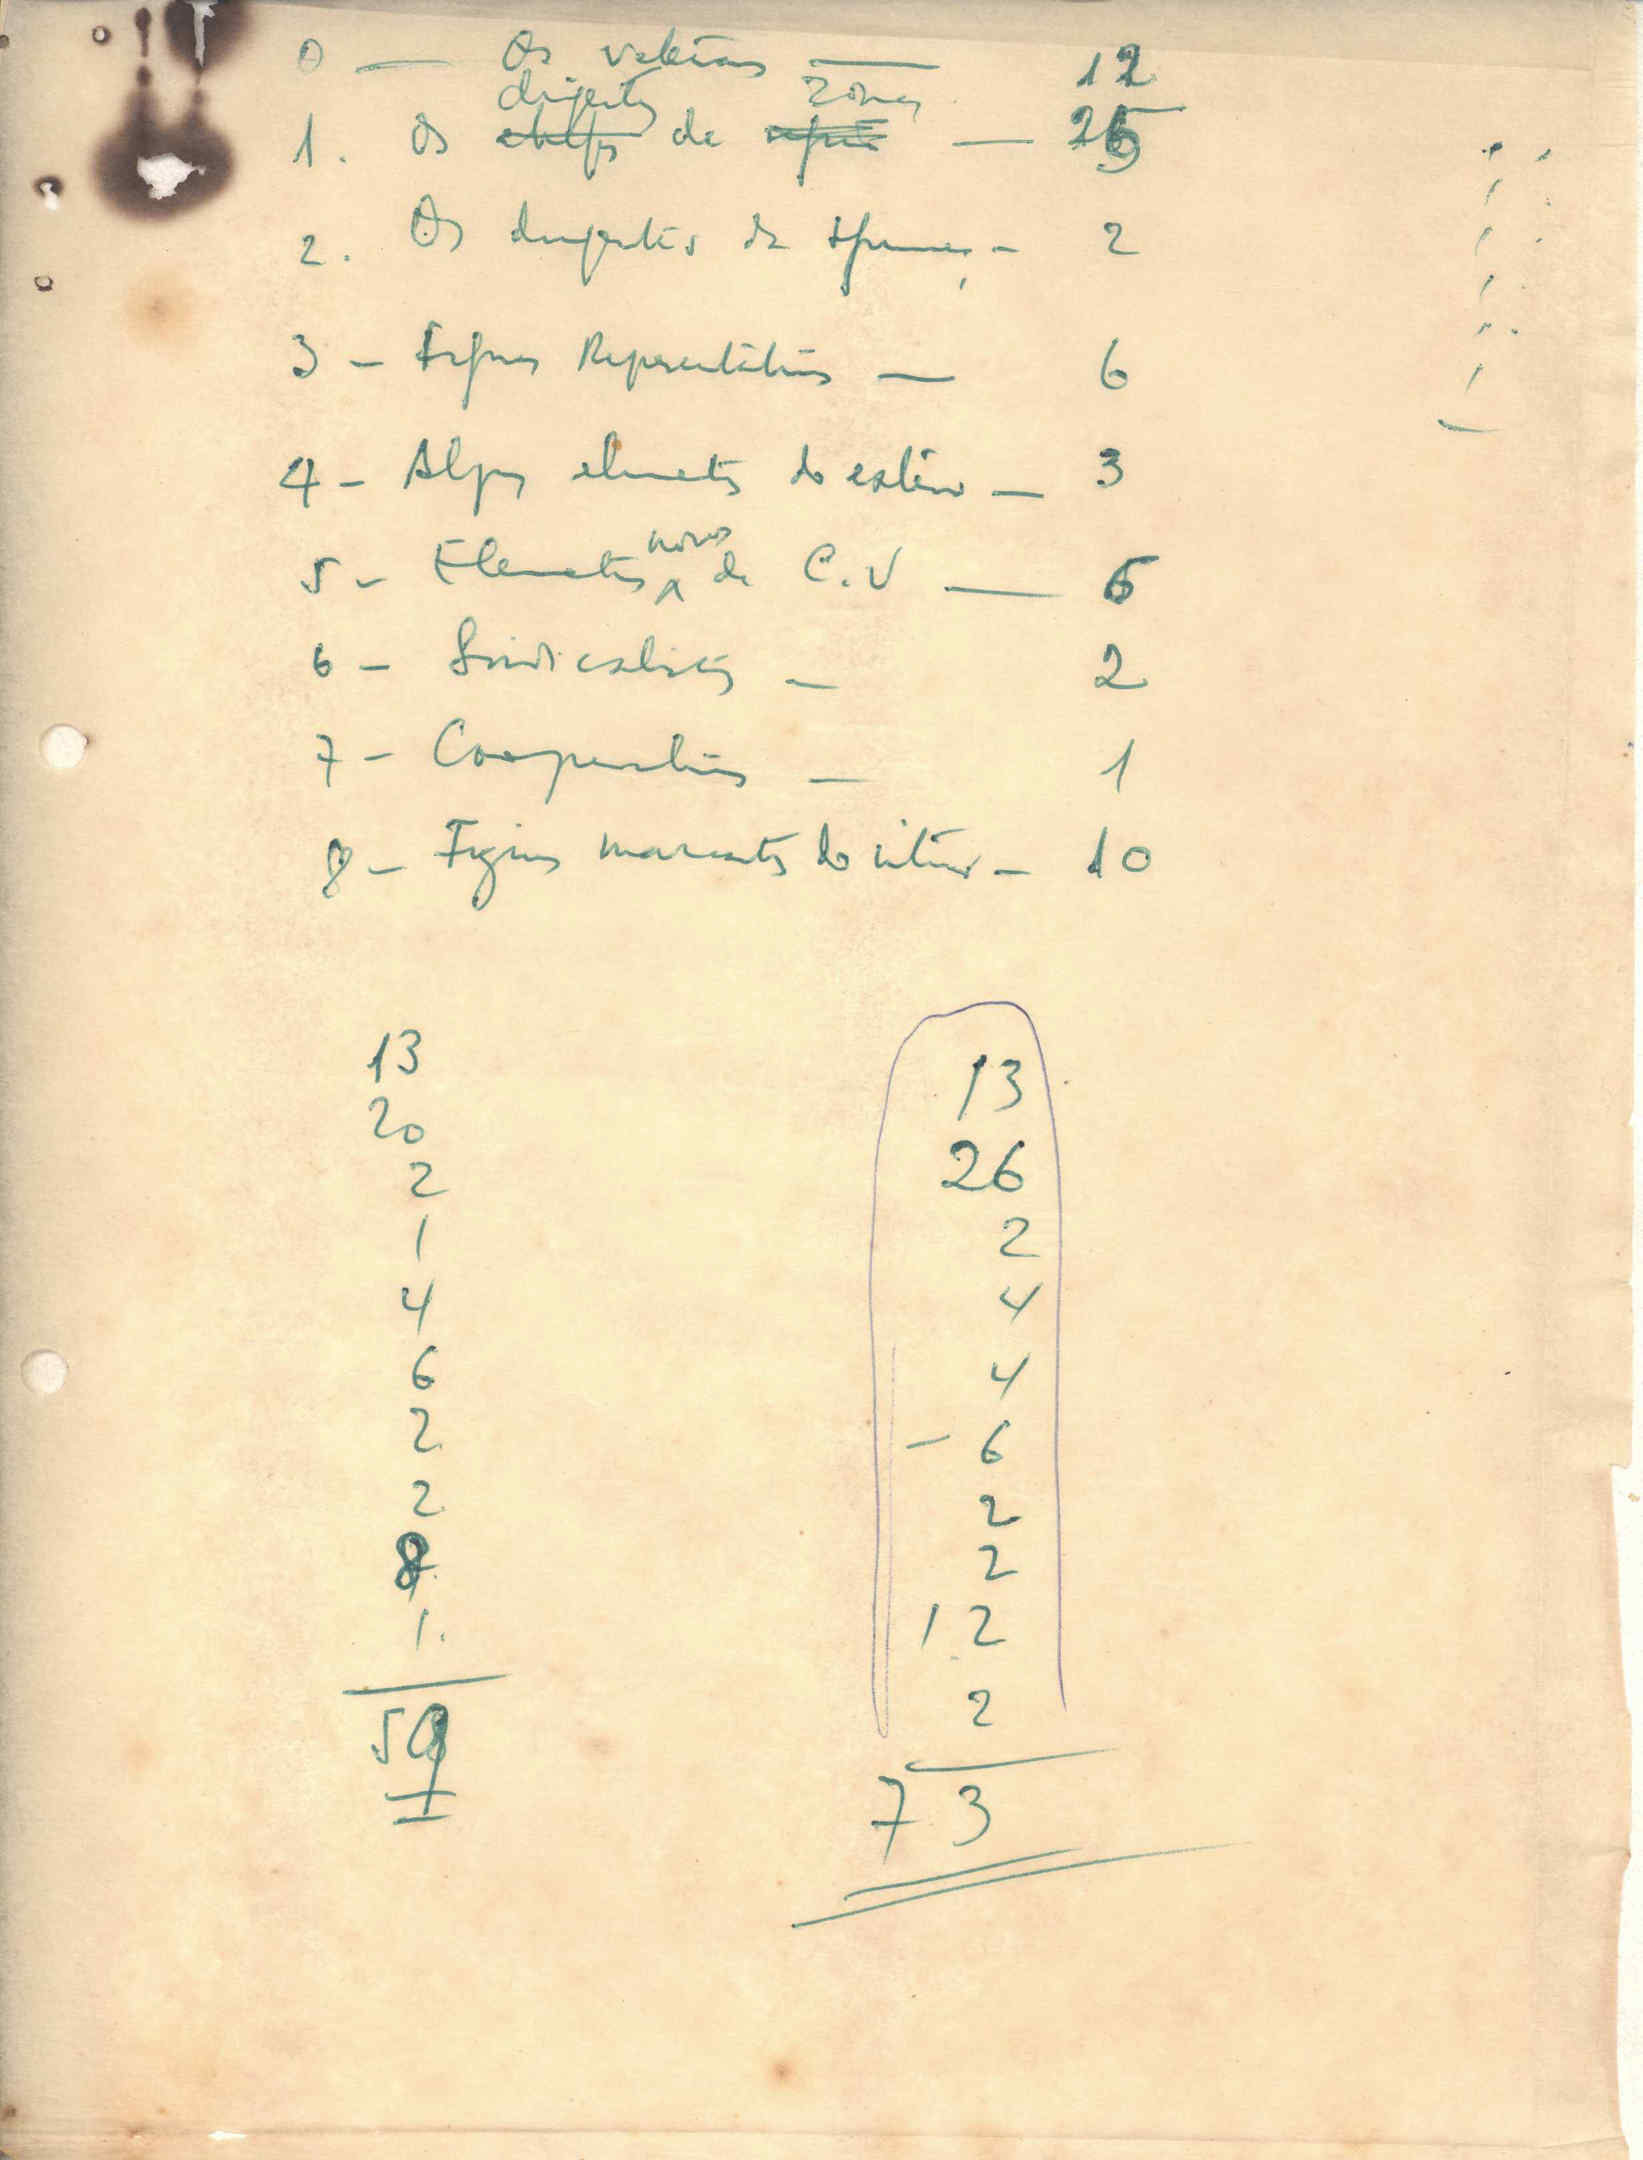 0 — Os veteranos — 12
dirigentes zonas
1. Os de — 26
2. Os dirigentes da — 2
3 — Figuras Representativas — 6
4 — Alguns elementos do exterior — 3
novos
5 — Elementos de C.V — 6
6 — Sindicalistas — 2
7 — Cooperativas — 1
8 — Figuras marcantes do interior — 10
13
20
2
1
4
6
2
2
8
1.
59
13
26
2
4
4
– 6
2
2
12
2
73